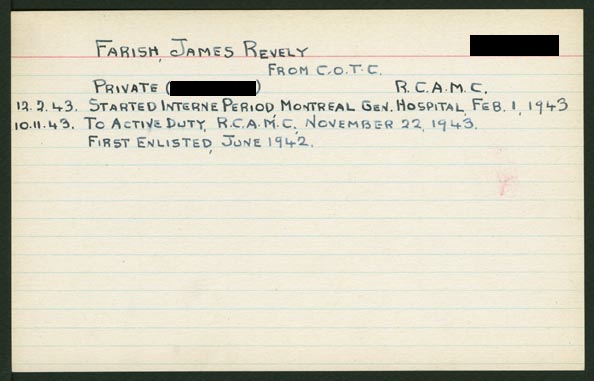 FARISH, JAMES REVELY
FROM C.O.T.C.
PRIVATE ( ) R.C.A.M.C.
12.2.43. STARTED INTERNE PERIOD MONTREAL GEN. HOSPITAL, FEB. 1, 1943
10.11.43. TO ACTIVE DUTY, R.C.A.M.C., NOVEMBER 22, 1943.
FIRST ENLISTED, JUNE 1942.